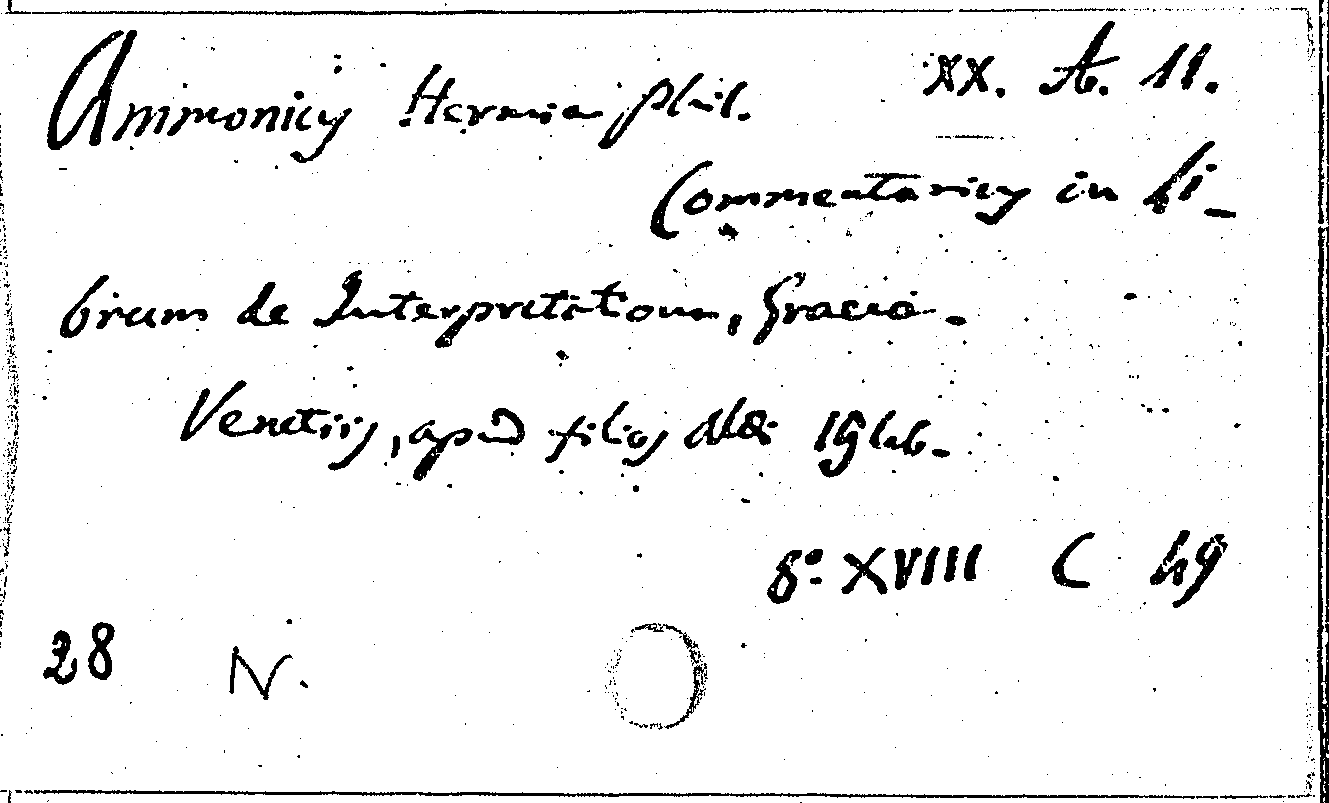 Ammonius Hermiae phil. XX. A. 11.
Commentarius in li-
brum de Interpretatione, Graece.
Venetiis, apud filios Aldi 1546.
8º. XVIII C 49
28 N.